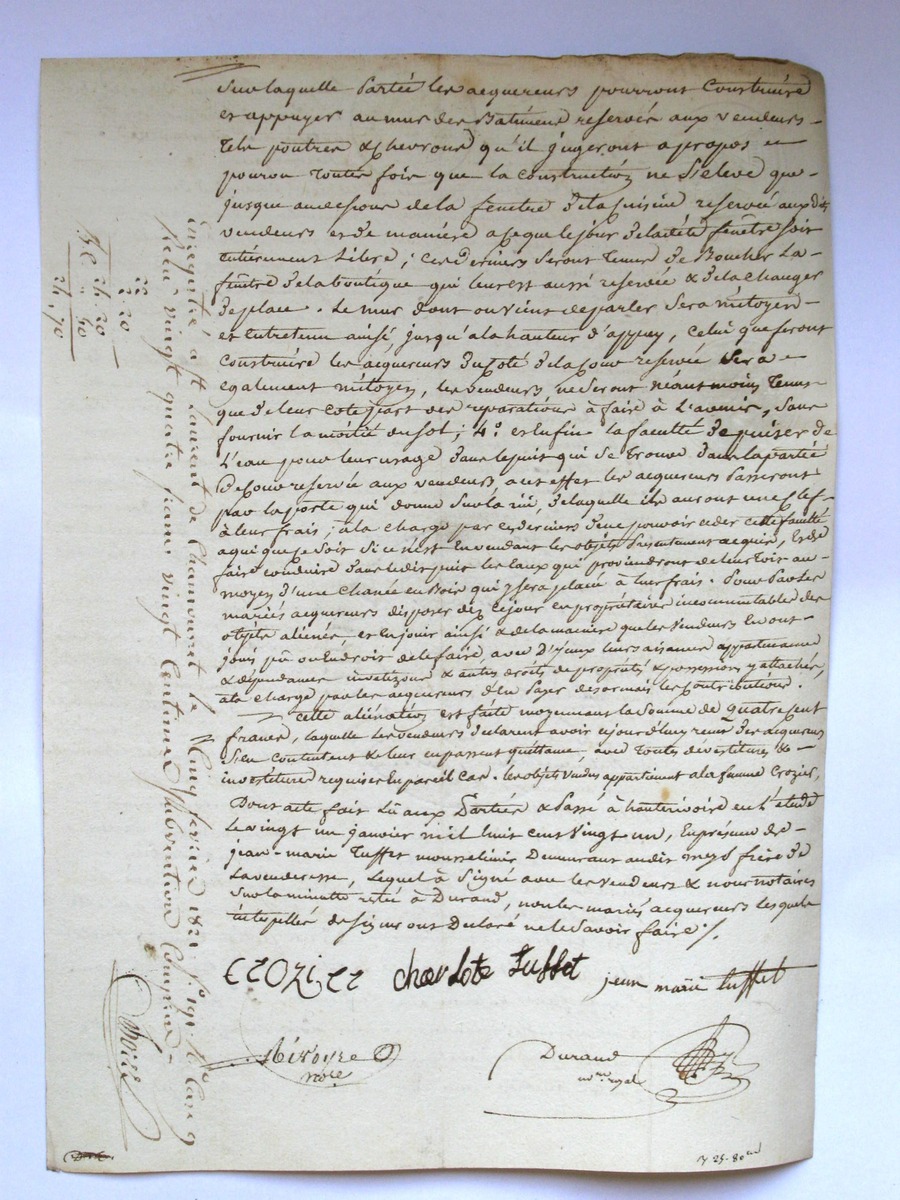 Sur laquelle Partie les acquereurs pourront Construire
et appuyer au mur des Batiments reservée aux vendeurs
Tels poutres & chevrons qu'il jugeront apropos
pourvu Toutes fois que la construction ne S'eleve que
jusque au dessous de la fenêtre de la Cuisine reservée aux dits
vendeurs et de maniere a ce que le jour de la dite fenêtre soit
entierement Libre; Ces Derniers Seront Tenus de Boucher La
fenêtre de la boutique qui leur est aussi reservée & de la changer
de place. Le mur dont on vient de parler Sera mitoyen
et entretenu ainsi jusqu'a la hauteur d'appuy, Celui que feront
Construire les acquereurs du Coté de la Cour reservée Sera
egalement mitoyen, les vendeurs ne Seront néantmoins Tenus
que de leur cote part des reparations à faire à L'avenir, Sans
fournir la moitié du Sol; 4° et Enfin la faculté de puiser de
L'eau pour leur usage dans le puit qui Se Trouve dans la partie
De Cour reservée aux vendeurs, a cet effet les acquereurs Passeront
par la porte qui donne Sur la rue, de laquelle ils auront une Clef
à leur frais; à la charge par ces derniers de ne pouvoir ceder cette faculté
a qui que ce Soit Si ce n'est En vendant les objets Presentement acquis, Et de
faire conduire dans le dit puit les Eaux qui proviendront de leur Toit au
moyen d'une Chanée en Bois qui y Sera placée à leur frais. Pour Par les
mariés acquereurs disposer dès Ce jour en propriétaires incommutables des
objets aliénés, et En jouir ainsi & de la maniere que les Vendeurs En ont
joui pu ou En droit de le faire avec D'iceux leurs aisances appartenances
& dependances & autres droits de propriété & possession y attachés,
à la charge par les acquereurs d'En Payer desormais les Contributions.
Cette aliénation est faite moyennant la Somme de Quatre cent
francs, laquelle les vendeurs declarent avoir cejourd'huy reçu des acquereurs
S'en Contentent & leur en passent quittance, avec Toutes dévestitures &
investiture requises En pareil Cas. les objets vendus appartiennent a la femme Crozier,
Dont acte fait Lû aux Parties & Passé à hauterivoire en L'étude
Le vingt un janvier mil huit cent Vingt un, En présence de
jean-marie Tuffet mousselinier Demeurant audit frere de
La venderesse, Lequel à Signé avec les vendeurs & nous notaires
Sur la minutte restée à Durand, non les mariés acquereurs lesquels
interpellés de signer ont Declaré ne le Savoir faire ./.
CROZIER Charlote Tuffet jean marie tuffet
nore
Durand
nore royal
Enregistré à St Laurent de Chamousset le Cinq fevrier 1821
Reçu vingt quatre francs vingt Centimes Subvention Comprise
22
2. 20
24. 20
24. 70